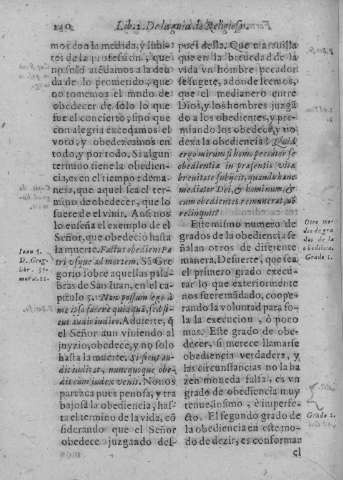 240 Lib. 2. De la guia de Religiosos.
mos con la medida, y limi-
tes de la profession, que
no solo atédamos a la deu
da de lo prometido, que
no tomemos el modo de
obedecer de solo lo que
fue el concierto, sino que
con alegria excedamos el
voto, y obedezcamos en
todo, y por todo. Si algun
termino tiene la obedien-
cia, es en el tiempo edema-
nera, que aquel sea el ter-
mino de obedecer, que lo
fuere de el vivir. Ansi nos
lo enseña el exemplo de el
Señor, que obedeciò hasta
la muerte. Factus obediens Pa
tri usque ad mortem. Sã Gre
gorio sobre aquellas pala-
bras de San Iuan, en el ca-
pitulo 5. Non possum ego à
me ipso facere quicquã, sed sic-
ut audio iudico. Advierte, q̃
el Señor aun viniendo al
juyzio, obedece, y no solo
hasta la muerte. Si sicut au-
dit iudicat, nunc quoque obe-
dit cum iudex venit. No nos
parezca pues penosa, y tra
bajosa la obediencia, has-
ta el termino de la vida, cõ
siderando que el Señor
obedece juzgando des-
Ioan. 5.
D. Greg.
libr. 35.
mora. 12.
pues de ella. Que maravilla
que en la brevedad de
la vida vn hombre pecador
se sugete, adonde lo hizo
el medianero entre
Dios, y los hombres juzgã
do a los obedientes, y pre-
miando los obedece, y no
dexa la obediencia? Quid
ergo mirum si homo peccator se
obedientia in præsentis vitæ
brevitate subijcit, quando hanc
mediator Dei, & hominum, &
cum obedientes remunerat, nõ
relinquit?
Este mismo numero de
grados de la obediencia se-
ñalan otros de diferente
manera, De suerte, que sea
el primero grado execu-
tar lo que exteriormente
nos fuere mãdado, cooperan
rando la voluntad para so-
la la execucion, ò poco
mas. Este grado de obe-
decer, si merece llamarse
obediencia verdadera, y
las circunstancias no la ha
zen moneda falsa, es vn
grado de obediencia muy
tenue, ãnsimo, è imperfe-
cto. El segundo grado de
la obediencia en este mo-
do de dezir, es conforman
el
Otro mo-
do de gra
dos de la
obediẽcia.
Grado 1.
Grado 2.